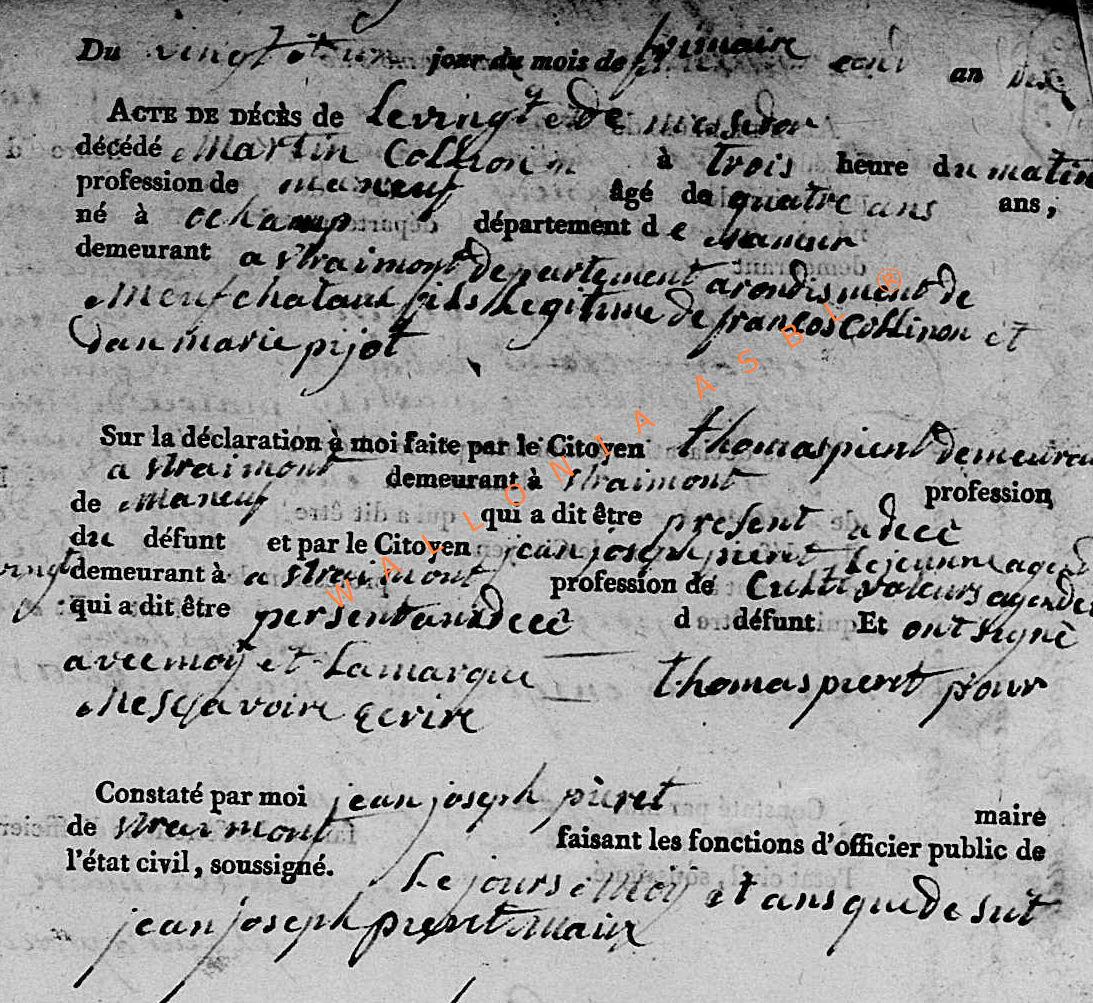 Du vingt et un jour du mois de frimaire an dix
ACTE DE DÉCÈS de Le vingt de messidor
décédé Martin Collinon à trois heure du matin
profession de maneuf âgé de quatre ans ans,
né à ochamp département de
demeurant a straimont departement arondisment de
Neufchataux fils Legitime de francos Collinon et
Dan marie pijot
Sur la déclaration à moi faite par le Citoyen thomas pieret demeurant
a straimont demeurant à straimont profession
de maneuf qui a dit être present a decè
du défunt et par le Citoyen jean joseph pieret Le jeunne agé de
vingt demeurant à a straimont profession de Cultivateurs
qui a dit être persent au decè d défunt Et ont signè
avec moy et La marque thomas pieret pour
ne sçavoire Ecrire
Constaté par moi jean joseph pieret maire
de straimont faisant les fonctions d'officier public de
l'état civil, soussigné. Le jours moy et ans que de sut
jean joseph pieret maix
WALLONIA ASBL ®